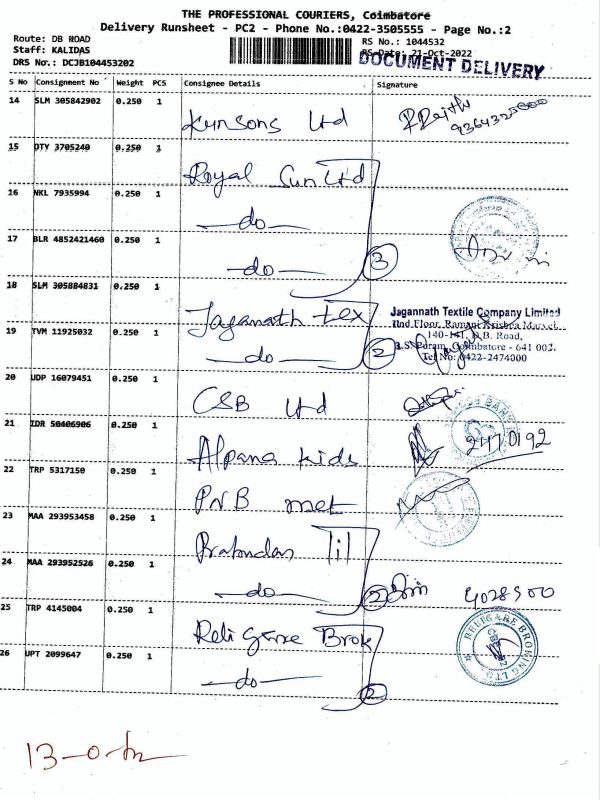 THE PROFESSIONAL COURIERS, Coimbatore
Delivery Runsheet - PC2 - Phone No.:0422-3505555 - Page No.:2
Route: DB ROAD
Staff: KALIDAS
DRS No.: DCJB104453202
RS No.: 1044532
RS Date: 21-Oct-2022
DOCUMENT DELIVERY
S No Consignment No Weight PCS Consignee Details Signature
14 SLM 305842902 0.250 1 Kunsons Ltd
15 DTY 3705240 0.250 1 Royal Sun Ltd
16 NKL 7935994 0.250 1 —do—
17 BLR 4852421460 0.250 1 —do— 3
18 SLM 305884831 0.250 1 Jaganath tex
Jagannath Textile Company Limited
IInd Floor, Ramani Krishna Market,
140-141, D.B. Road,
R.S. Puram, Coimbatore - 641 002.
Tel No: 0422-2474000
19 TVM 11925032 0.250 1 —do— 2
20 UDP 16079451 0.250 1 CSB Ltd
21 IDR 50406906 0.250 1 Alpana kids 2470192
22 TRP 5317150 0.250 1 PNB met
23 MAA 293953458 0.250 1 til
24 MAA 293952526 0.250 1 —do— 2 4028500
25 TRP 4145004 0.250 1 Reli gare Brok
RELIGARE BROKING LTD
26 UPT 2099647 0.250 1 —do— 2